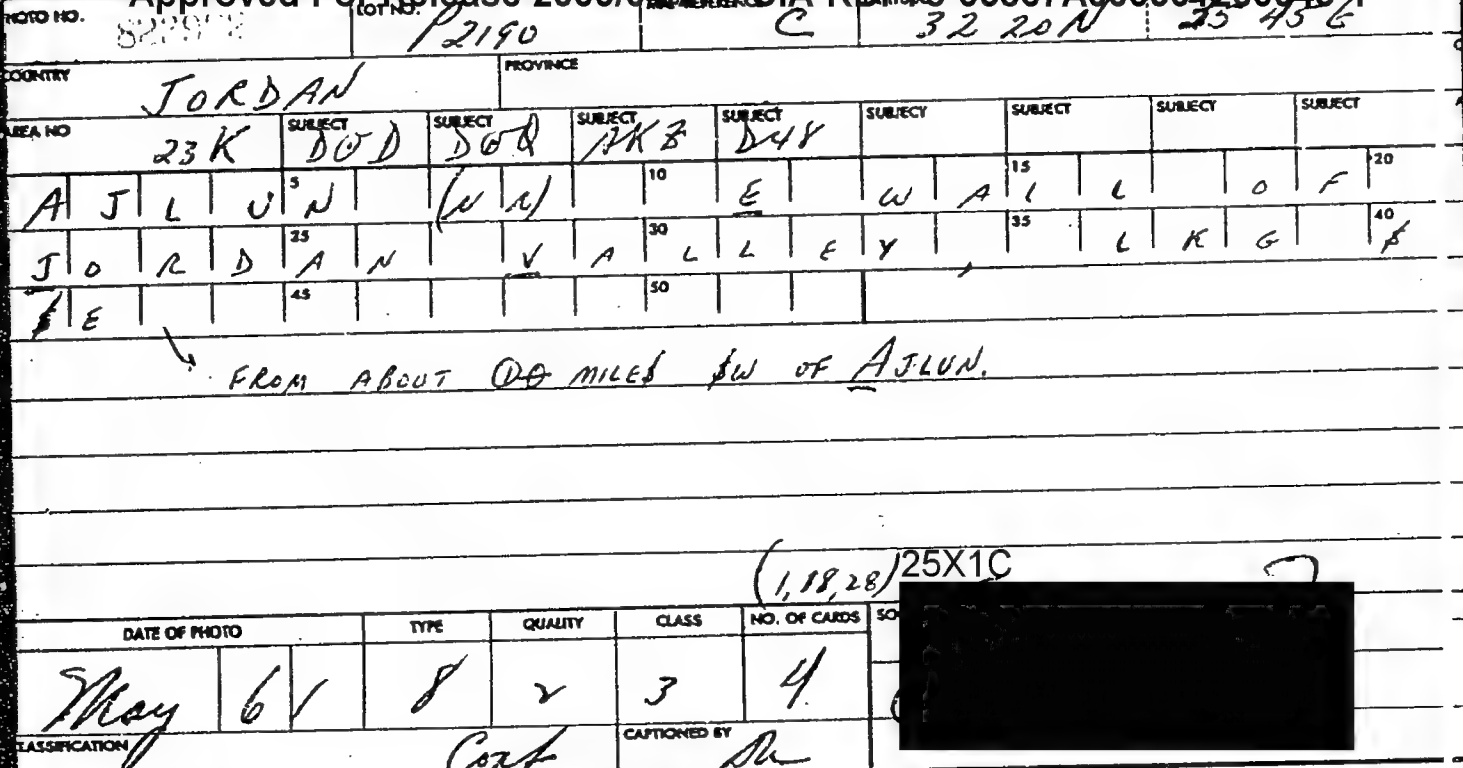 Approved For Release
PHOTO NO. LOT NO. P2190 C 32 20N 45 E
COUNTRY JORDAN PROVINCE
AREA NO 23K SUBJECT DØD SUBJECT DØQ SUBJECT AKZ SUBJECT D48 SUBJECT SUBJECT SUBJECT SUBJECT
AJLUN (NR) E WALL OF
JORDAN VALLEY, LKG $
$E
FROM ABOUT MILE$ $W OF AJLUN.
(1,18,28) 25X1C
DATE OF PHOTO TYPE QUALITY CLASS NO. OF CARDS SO
May 61 8 2 3 4
CLASSIFICATION Conf CAPTIONED BY